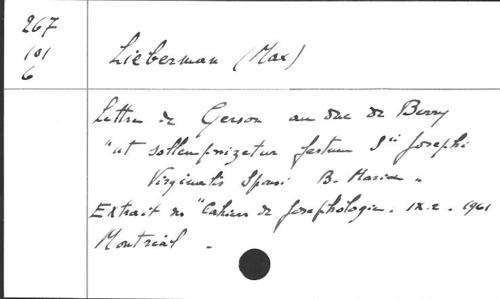 267
101
6
Lieberman (Max)
Lettre de Gerson au duc de Berry
"ut sollempnizetur festum Sti Josephi
Virginalis Sponsi B. Mariae"
Extrait des "Cahiers de Josephologie. IX-2. 1961
Montréal.